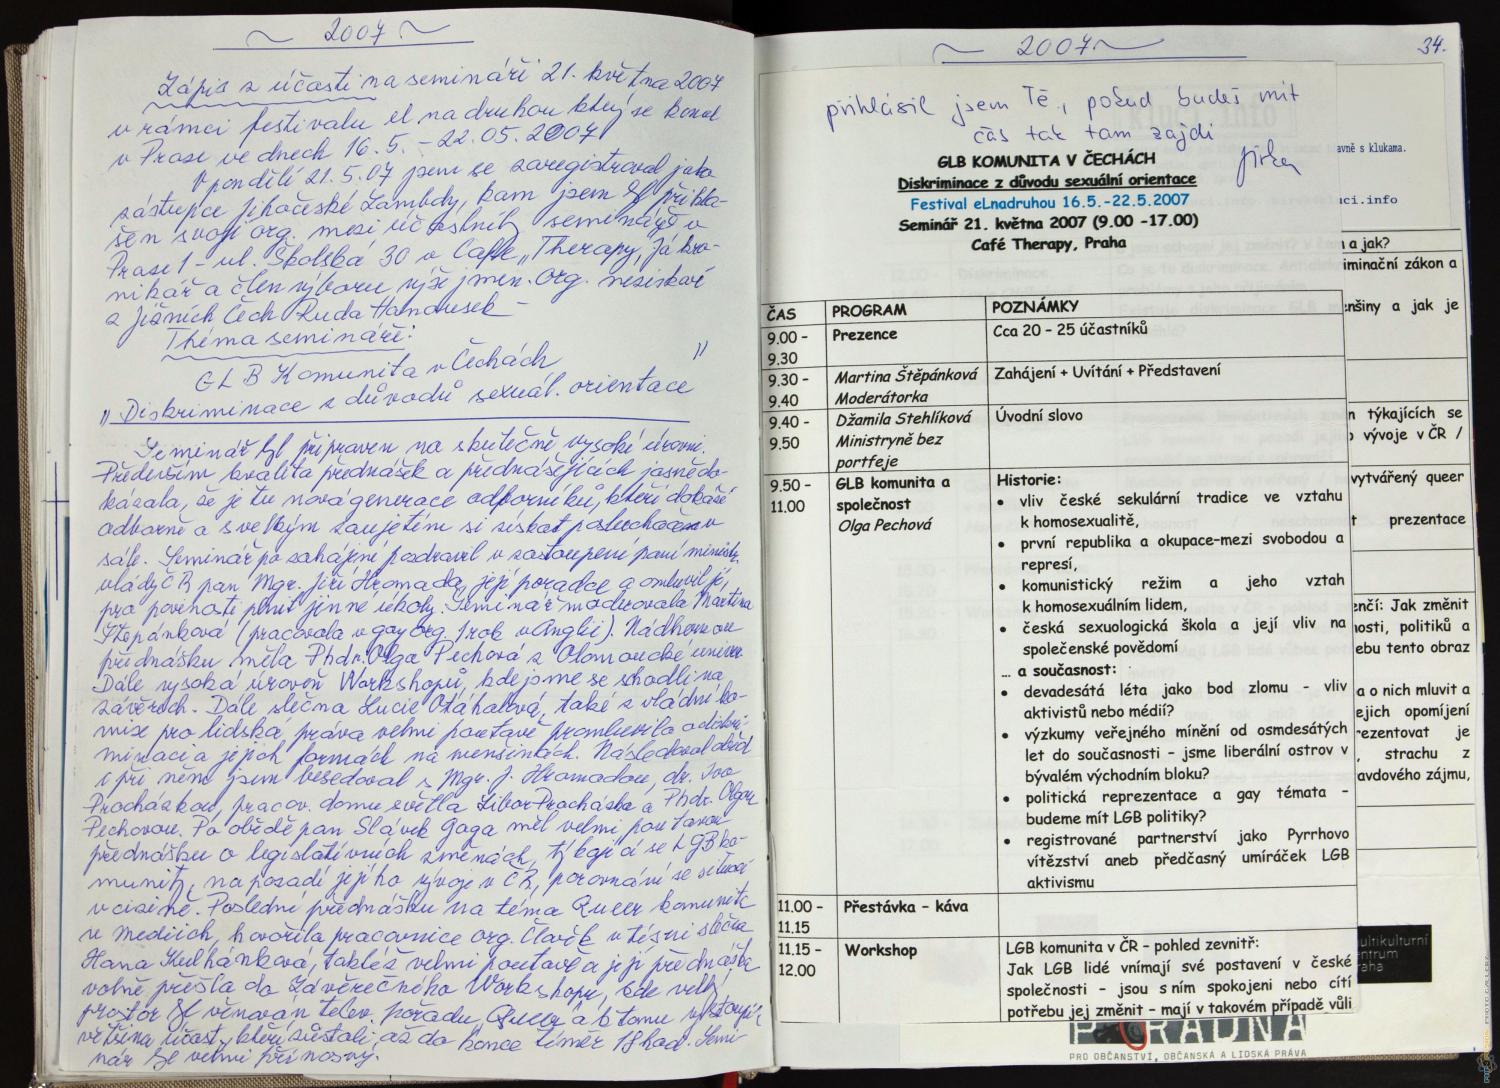 ~ 2007 ~
Zápis z účasti na semináři 21. května 2007
v rámci festivalu el na druhou který se konal
v Praze ve dnech 16.5. - 22.05.2007
V pondělí 21.5.07 jsem se zaregistroval jako
zástupce Jihočeské Lambdy, kam jsem byl přihlá-
šen svojí org. mezi účastníky semináře v
Praze 1 - ul. Školská 30 v Caffe „Therapy, já kro-
nikář a člen výboru výše jmen. org. neziskové
z jižních Čech Ruda Handrusek -
Théma semináře:
GLB Komunita v Čechách "
" Diskriminace z důvodů sexuál. orientace
Seminář byl připraven na skutečně vysoké úrovni.
Především kvalita přednášek a přednášejících jasně do-
kázala, že je tu nová generace odborníků, kteří dokáží
odborně a s velkým zaujetím si získat posluchače v
sále. Seminář po zahájení pozdravil v zastoupení paní ministr.
vlády ČR pan Mgr. Jiří Hromada, její poradce a omluvil ji,
pro povinnosti plnit jinné úkoly. Seminář moderovala Martina
Štěpánková (pracovala v gay org. 1 rok v Anglii). Nádhernou
přednášku měla Phdr. Olga Pechová z Olomoucké univer.
Dále vysoká úroveň Workshopů, kde jsme se shodli na
závěrech. Dále slečna Lucie Otáhalová, také z vládní ko-
mise pro lidská práva velmi poutavě promluvila o diskri-
minaci a jejich formách na menšinách. Následoval oběd
i při něm jsem besedoval s Mgr. J. Hromadou, dr. Ivo
Procházkou, pracov. domu světla Libor Procházka a Phdr. Olgou
Pechovou. Po obědě pan Slávek Goga měl velmi poutavou
přednášku o legislativních změnách, týkající se LGB ko-
munity, na pozadí jejího vývoje v ČR, porovnání se situací
v cizině. Poslední přednášku na téma Queer komunita
v mediích, hovořila pracovnice org. Člověk v tísni slečna
Hana Kulhánková, takléž velmi poutavě a její přednáška
volně přešla do závěrečného Workshopu, kde velký
prostor byl věnován telev. pořadu Queer a k tomu vystoupi-
většina účast. kteří zůstali, až do konce téměř 18 hod. Semi-
nář byl velmi přínosný.
~ 2007 ~
34.
přihlásil jsem Tě, pokud budeš mít
čas tak tam zajdi
Jirka
GLB KOMUNITA V ČECHÁCH
Diskriminace z důvodu sexuální orientace
Festival eLnadruhou 16.5.-22.5.2007
Seminář 21. května 2007 (9.00 -17.00)
Café Therapy, Praha
ČAS PROGRAM POZNÁMKY
9.00 - Prezence Cca 20 - 25 účastníků
9.30
9.30 - Martina Štěpánková Zahájení + Uvítání + Představení
9.40 Moderátorka
9.40 - Džamila Stehlíková Úvodní slovo
9.50 Ministryně bez
portfeje
9.50 - GLB komunita a Historie:
11.00 společnost • vliv české sekulární tradice ve vztahu
Olga Pechová k homosexualitě,
• první republika a okupace-mezi svobodou a
represí,
• komunistický režim a jeho vztah
k homosexuálním lidem,
• česká sexuologická škola a její vliv na
společenské povědomí
… a současnost:
• devadesátá léta jako bod zlomu - vliv
aktivistů nebo médií?
• výzkumy veřejného mínění od osmdesátých
let do současnosti - jsme liberální ostrov v
bývalém východním bloku?
• politická reprezentace a gay témata -
budeme mít LGB politiky?
• registrované partnerství jako Pyrrhovo
vítězství aneb předčasný umíráček LGB
aktivismu
11.00 - Přestávka - káva
11.15
11.15 - Workshop LGB komunita v ČR - pohled zevnitř:
12.00 Jak LGB lidé vnímají své postavení v české
společnosti - jsou s ním spokojeni nebo cítí
potřebu jej změnit - mají v takovém případě vůli
avně s klukama.
uci.info
a jak?
iminační zákon a
nšiny a jak je
n týkajících se
vývoje v ČR /
vytvářený queer
t prezentace
nčí: Jak změnit
nosti, politiků a
ebu tento obraz
a o nich mluvit a
ejich opomíjení
ezentovat je
, strachu z
avdového zájmu,
ultikulturní
entrum
raha
PORADNA
PRO OBČANSTVÍ, OBČANSKÁ A LIDSKÁ PRÁVA